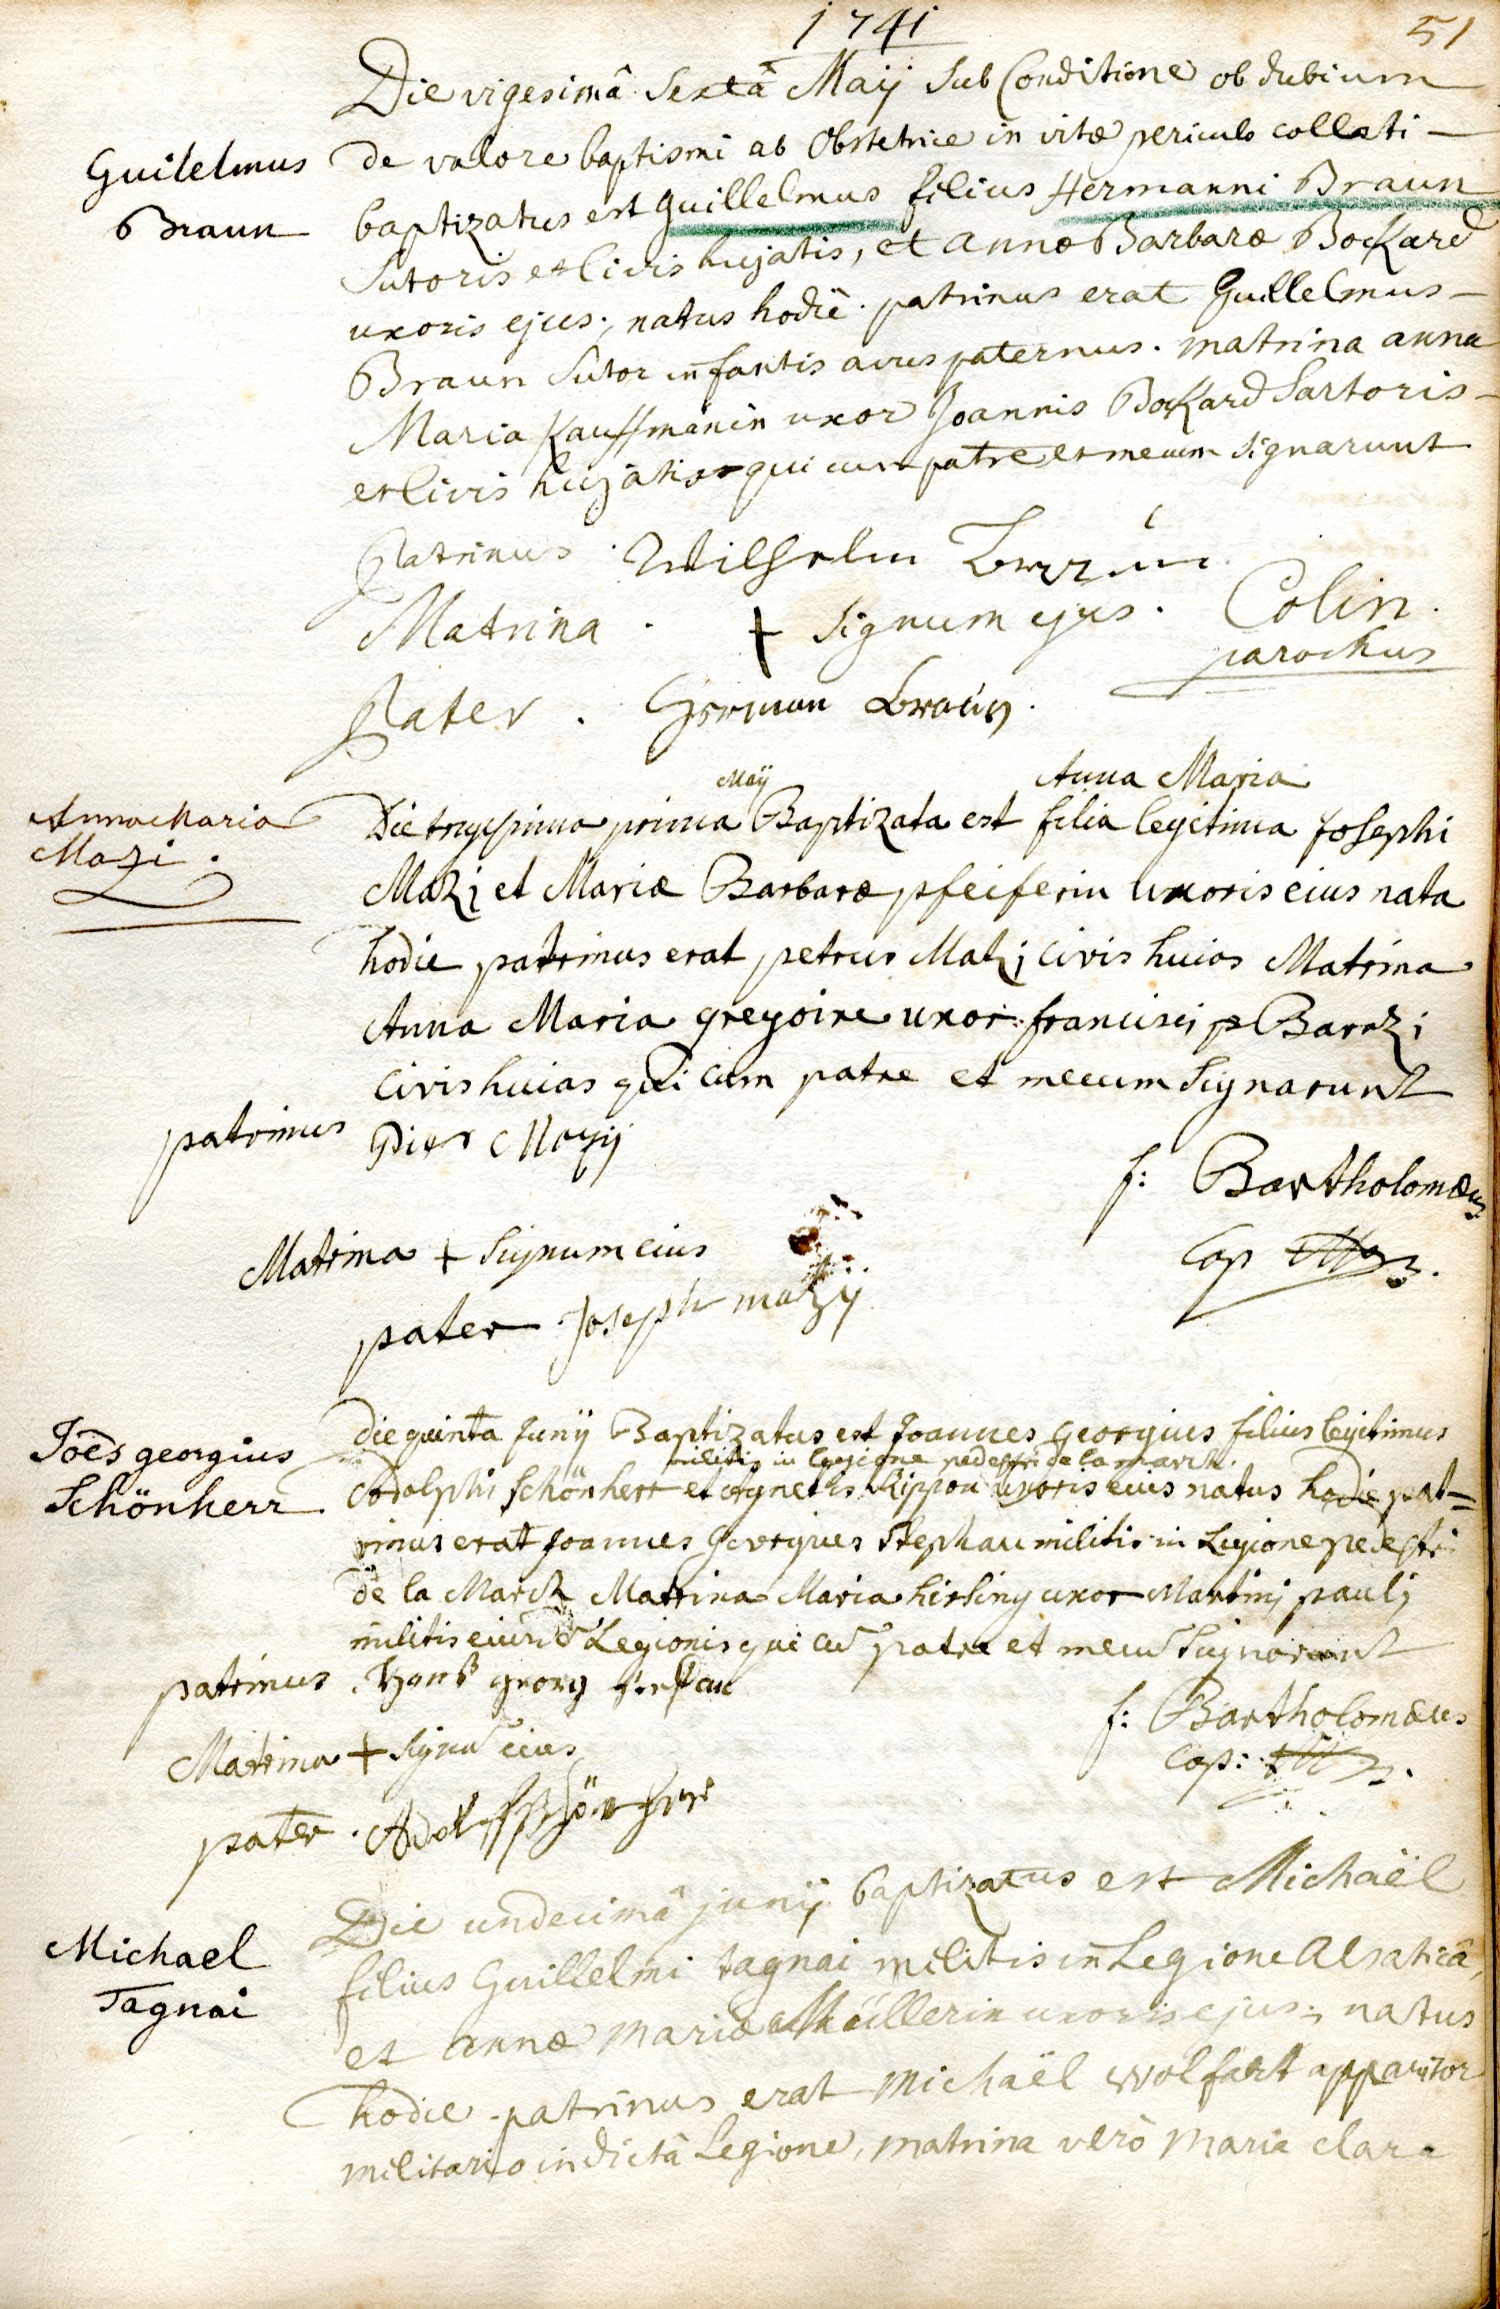 1741
51
Die vigesimâ Sextâ Maij Sub Conditione ob dubium
Guilelmus
Braun
de valore baptismi ab Obstetrice in vitæ periculo collati —
baptizatus est Guillelmus filius Hermanni Braun
Sutoris et Civis hujatis, et annæ Barbaræ Bockard
uxoris ejus; natus hodiè. patrinus erat Guillelmus —
Braun Sutor infantis avus paternus. matrina anna
Maria Kauffmänin uxor Joannis Bockard Sartoris —
et Civis hujatis qui cum patre et mecum Signarunt
Patrinus . Wilhelm Braun
Matrina . + Signum ejus . Colin .
parochus
Pater . Herman Braun .
Maÿ Anna Maria
Anna Maria
Mazi .
Die trigesima prima Baptizata est filia legitima Josephi
Mazi et Mariæ Barbaræ pfeiferin uxoris eius nata
hodie patrinus erat petrus Matzi civis huias Matrina
Anna Maria gregoire uxor francisci p Baratzi
civis huias qui cum patre et mecum Signarunt
patrinus Piter Mazij
f: Bartholomæus
Matrina + Signum eius
Cap
pater Joseph mazÿ
Joes georgius
Schönherr
Die quinta Junÿ Baptizatus est Joannes Georgius filius legitimus
militis in legione pedestri de la marck.
Adolphi Schönherr et Agnetis Rippon uxoris eius natus hodie pat=
rinus erat Joannes Georgius Stephan militis in Legione pedestri
de la Marck Matrina Maria hirsing uxor Martini pauli
militis eiusd Legionis qui cu patre et mecu Signarunt
patrinus Hanß georg
f: Bartholomæus
Matrina + Signu eius
Cap:
pater . Adolf Schönherr
Michael
Tagnai
Die undecimâ junij baptizatus est Michaël
filius Guillelmi tagnai militis in Legione Alsaticâ,
et annæ mariæ Müllerin uxoris ejus; natus
hodie . patrinus erat Michaël wolfart apparitor
militario in dictâ Legione, matrina verò maria clara